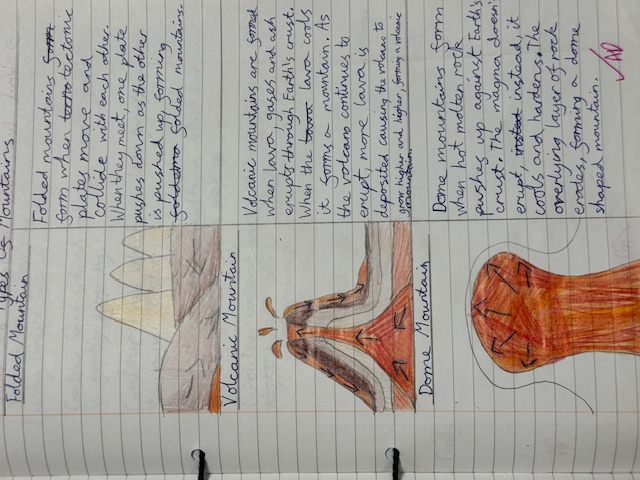 Types of Mountains
Folded Mountain
Folded mountains form
form when tecto tectonic
plates move and
collide with each other.
When they meet, one plate
pushes down as the other
is pushed up, forming
folded mountains.
Volcanic Mountain
Volcanic mountains are formed
when lava, gases and ash
erupts through Earth's crust.
When the lava lava cools
it forms a mountain. As
the volcano continues to
erupt, more lava is
deposited causing the volcano to
grow higher and higher, forming a volcanic
mountain.
Dome Mountain
Dome mountains form
when hot molten rock
pushes up against Earth's
crust. The magma doesn
erupt, insted instead it
cools and hardens. The
overlying layer of rock
erodes, forming a dome
shaped mountain.